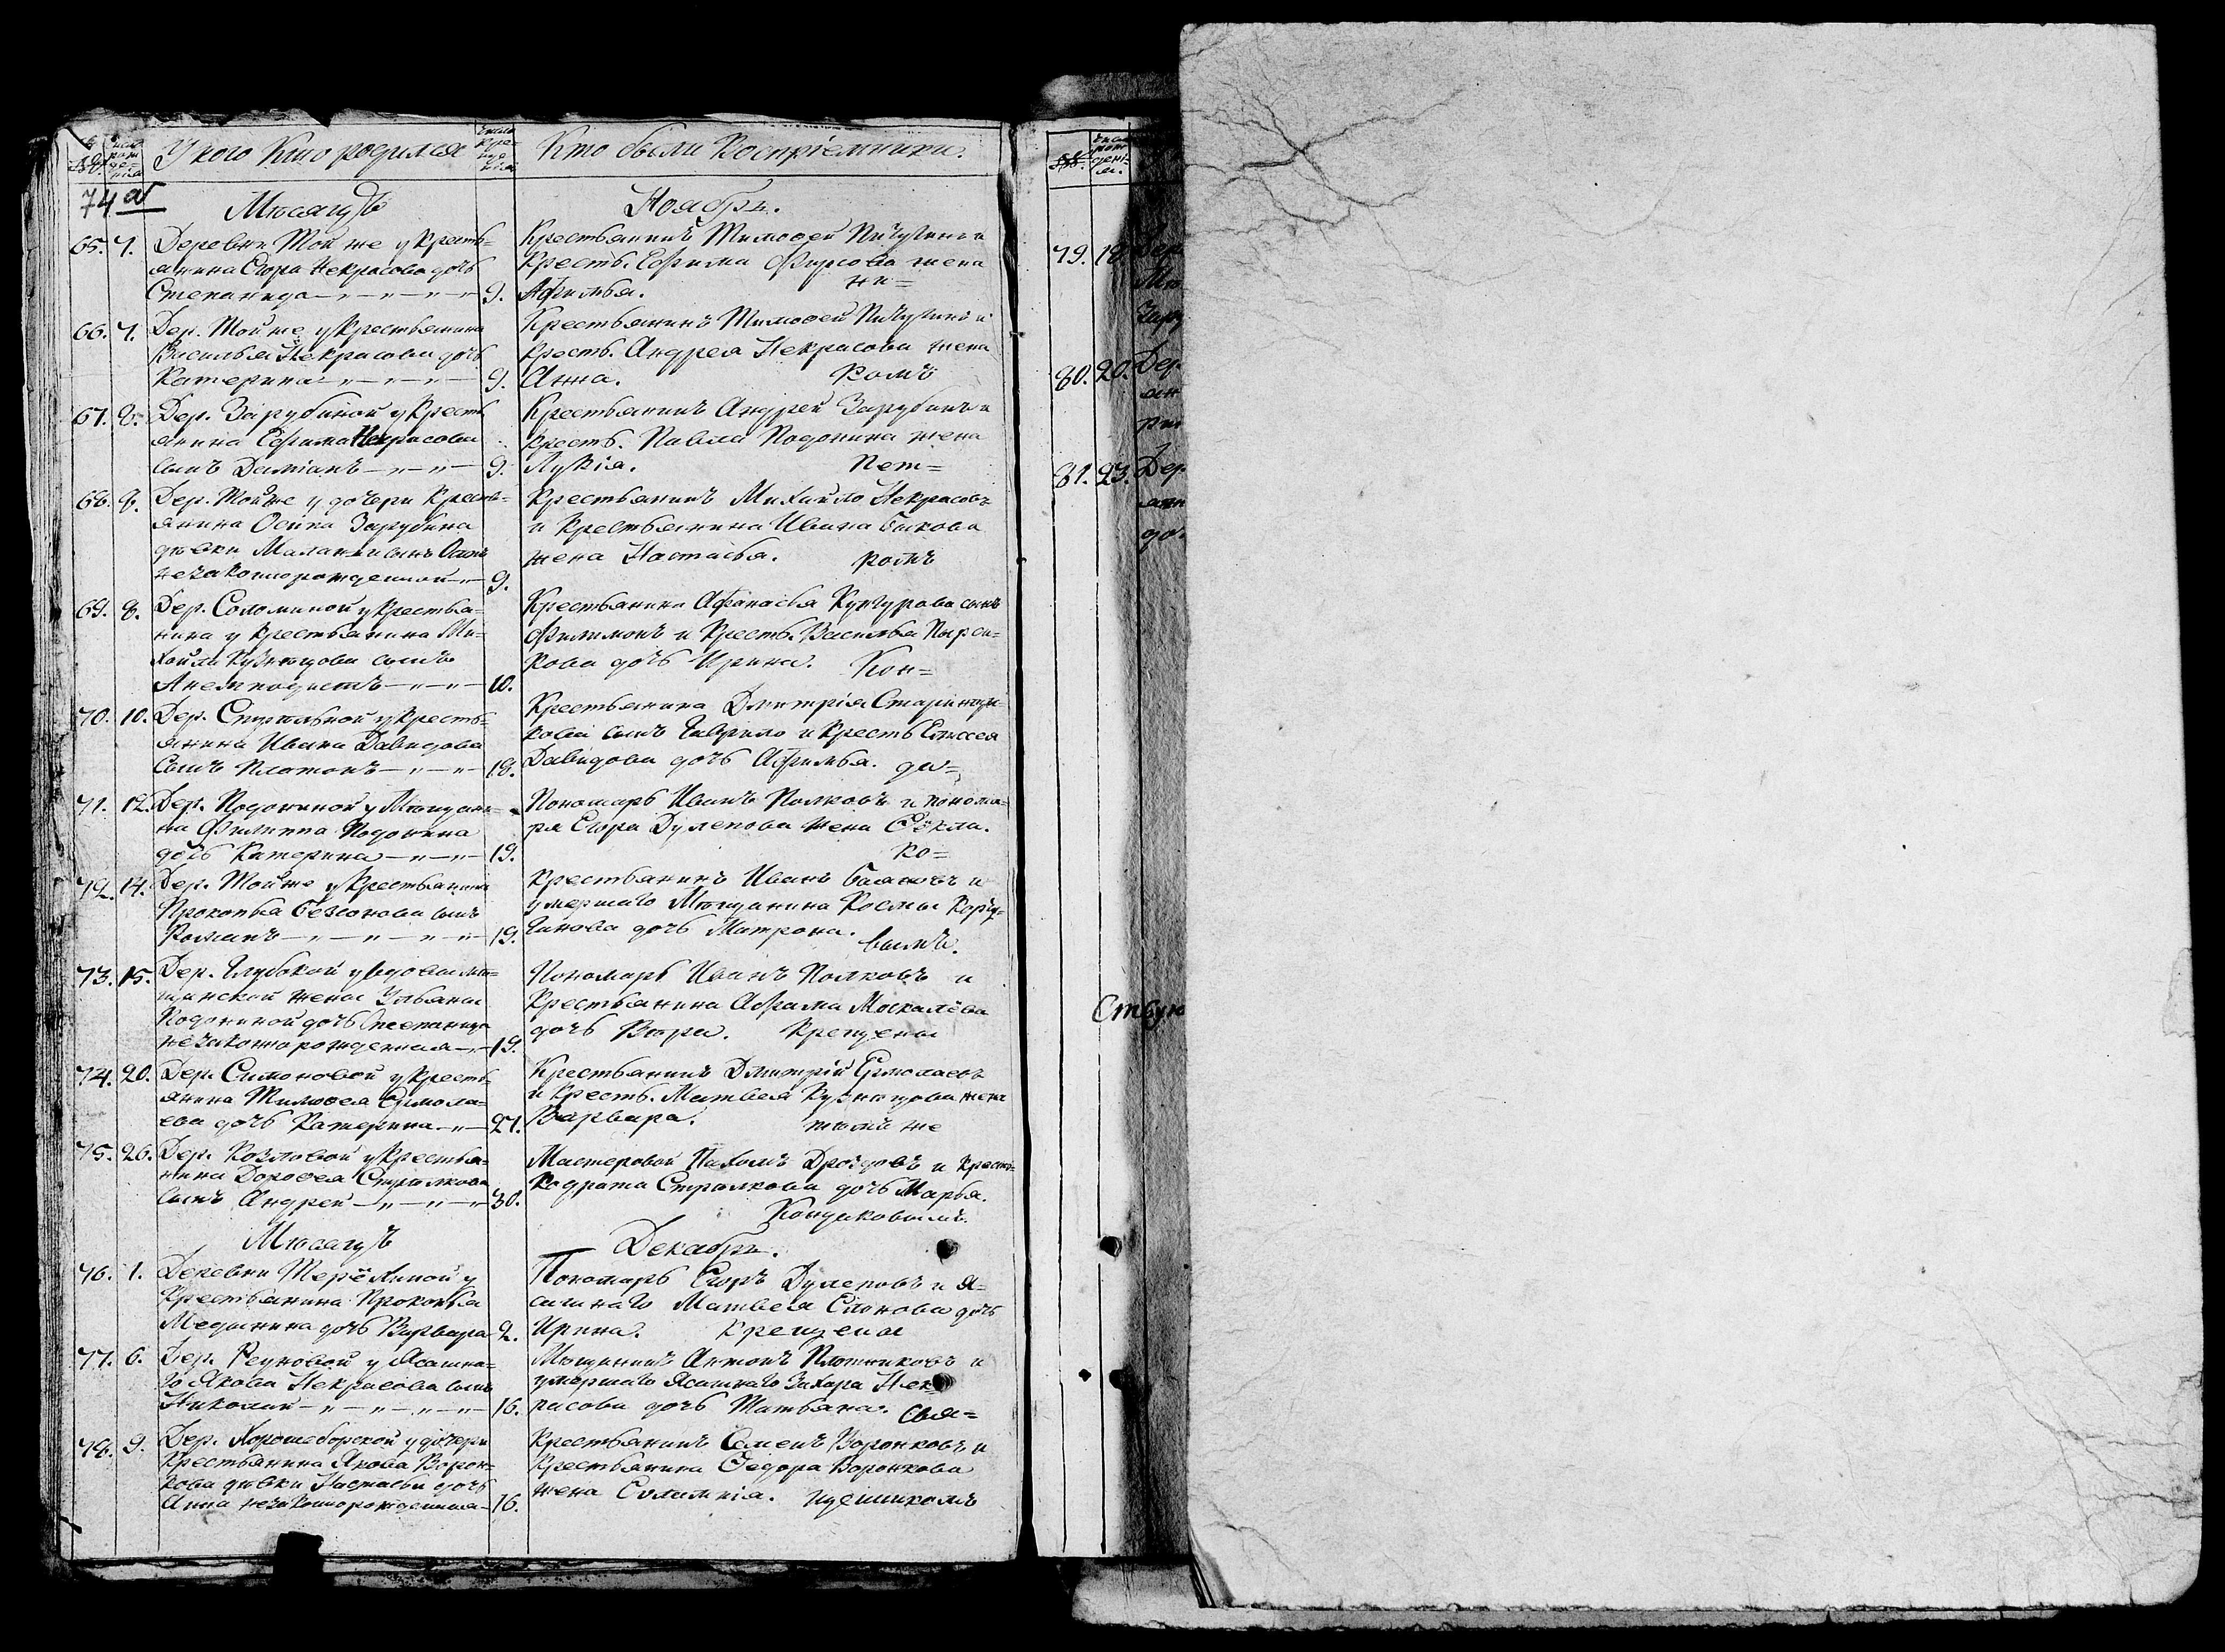 № Число рождения У кого кто родился Число крещения Кто были восприемники.
74 об
Месяцъ Ноябрь.
65. 7. Деревни Той же у кресть=
янина Егора Некрасова дочь
Степанида 9.
Крестьянинъ Тимофей Пичугинъ и
кресть. Ефима Фирсова жена
Афимья. ни=
66. 7. Дер. Той же у крестьянина
Василья Некрасова дочь
Катерина 9.
Крестьянинъ Тимофей Пичугинъ и
кресть. Андрея Некрасова жена
Анна. комъ
67. 8. Дер. Зарубиной у кресть
янина Ефима Некрасова
сынъ Даміанъ 9.
Крестьянинъ Андрей Зарубинъ и
кресть. Павла Подонина жена
Лукія. Пет=
68. 8. Дер. Той же у дочери кресть=
янина Осипа Зарубина
девки Маланьи сынъ Осипъ
незаконнорожденной 9.
Крестьянинъ Михайло Некрасовъ
и крестьянина Ивана Быкова
жена Настасья. ромъ
69. 8. Дер. Соломиной у крестья=
нина у крестьянина Ми=
хайла Кузнецова сынъ
Анемподистъ 10.
Крестьянина Афанасья Кунгурова сынъ
Филимонъ и кресть. Василья Пырси=
кова дочь Ирина. Кон=
70. 10. Дер. у кресть=
янина Ивана Давидова
сынъ Платонъ 18.
Крестьянина Дмитрія
кова сынъ Гаврило и кресть Елисея
Давидова дочь Афимья. ди=
71. 12. Дер. Подониной у Мещани=
на Филиппа Подонина
дочь Катерина 19.
Пономарь Иванъ Попковъ и понома=
ря Егора Дулепова жена Фёкла.
ко=
72. 14. Дер. Той же у крестьянина
Прокопья Безсонова сынъ
Романъ 19.
Крестьянинъ Иванъ Баяновъ и
умершаго Мещанина Космы
дочь Матрона. вымъ.
73. 15. Дер. Глубокой у вдовы ме=
щанской жены Ульяны
Подониной дочь Степанида
незаконнорожденная 19.
Пономарь Иванъ Попковъ и
Крестьянина Абрама Москалёва
дочь Вера. крещены
74. 20. Дер. Симоновой у кресть=
янина Тимофея Ермола=
ева дочь Катерина 27.
Крестьянинъ Дмитрій Ермолаевъ
и кресть. Матвея Кузнецова жена
Варвара. темъ же
75. 26. Дер. Козловой у крестья=
нина Дорофея Стрелкова
сынъ Андрей 30.
Мастеровой Пахомъ Дроздовъ и кресть=
Кодрата Стрелкова дочь Марья.
Кондаковымъ.
Месяцъ Декабрь.
76. 1. Деревни Терёхиной у
Крестьянина Прокопья
Медынина дочь Варвара 2.
Пономарь Егоръ Дулеповъ и Я=
сашнаго Матвея Слонова дочь
Ирина. Крещены
77. 6. Дер. Реуновой у Ясашна=
го Якова Некрасова сынъ
Николай 16.
Мещанинъ Антонъ Плотниковъ и
умершаго Ясашнаго Захара Нек=
расова дочь Татьяна. Свя=
78. 9. Дер. Хорошеборской у дочери
Крестьянина Якова Ворон=
кова девки Настасьи дочь
Анна незаконнорожденная 16.
Крестьянинъ Семенъ Воронковъ и
Крестьянина Федора Воронкова
жена Солимнія. щенникомъ
79. 18. Дер
Ме
80. 20. Дер.
ян
81. 23. Дер.
до
Ству